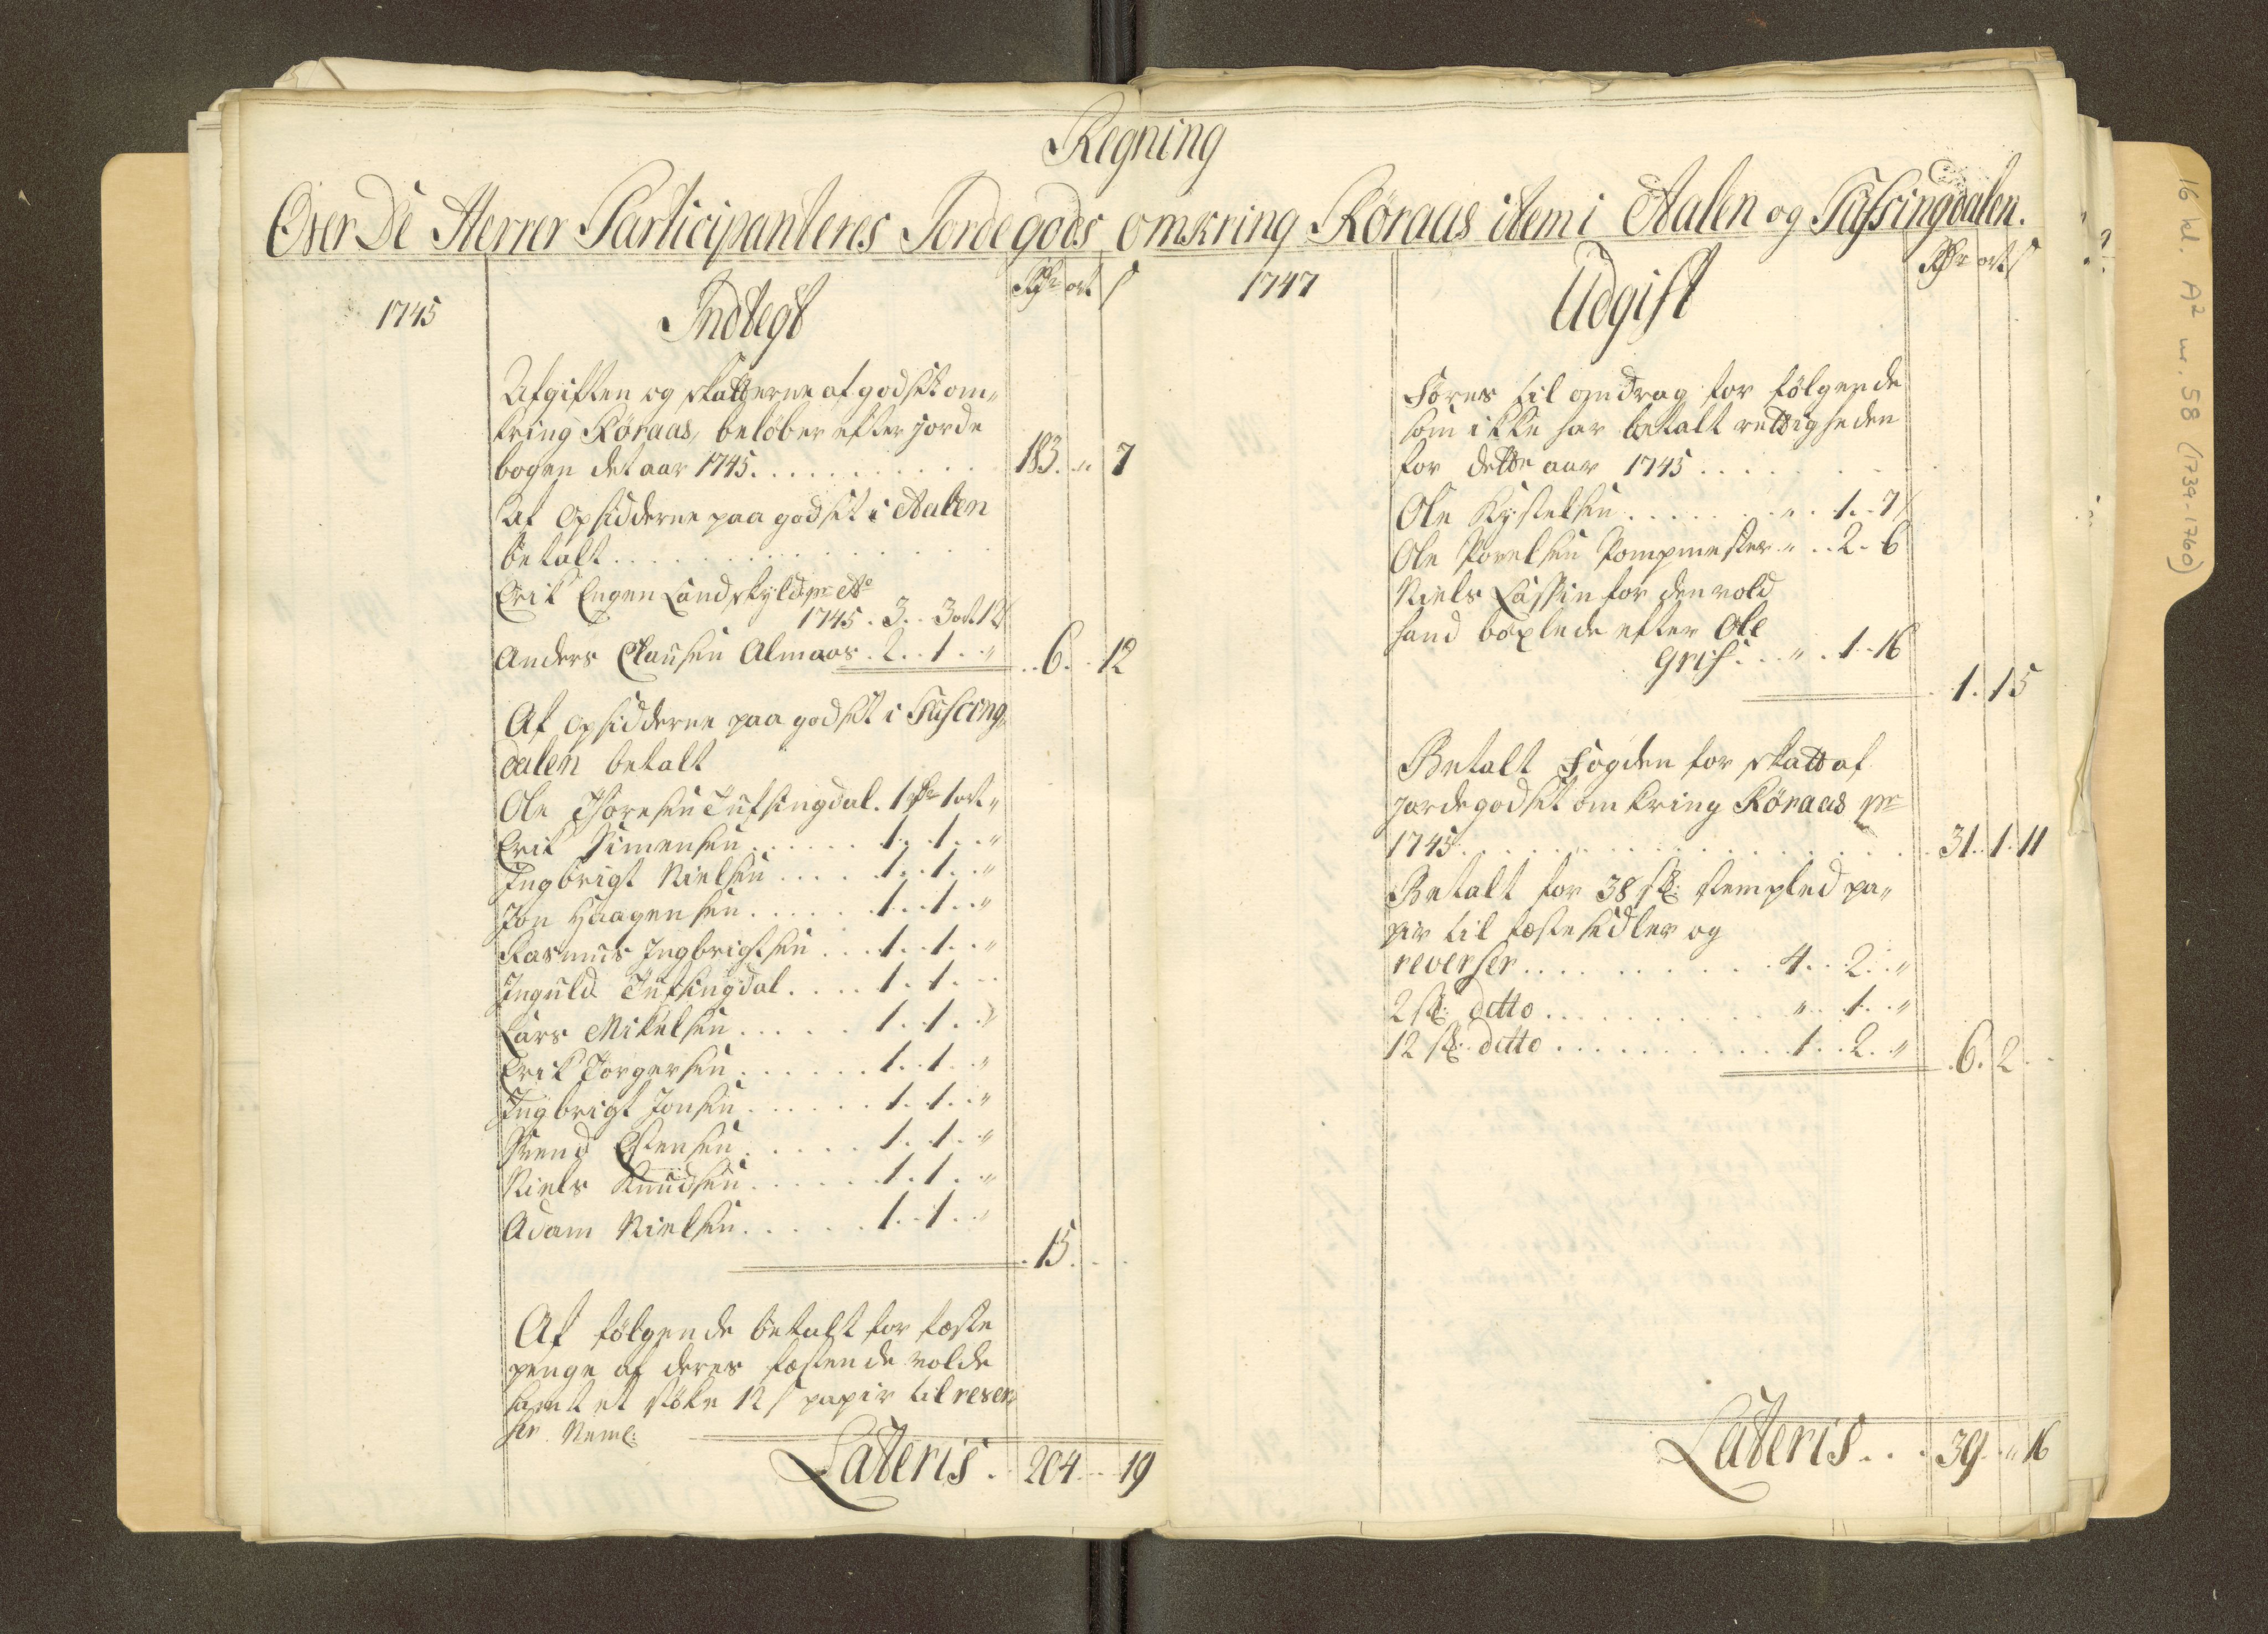 Regning
Over De Herrer Participanteres Jordegods omkring Röraas item i Aalen og Tufsingdalen.
1745
Indtegt
Rdr ort s
Afgiften og skatterne af godset om„
kring Röraas, belöber efter jorde
bogen det aar 1745. . . . . . . . . 183. „ 7
Af Opsidderne paa godset i Aalen
betalt . . . . . . . . . .
Erik Engen Landskyld pr Ao
1745 . 3 . . 3 ort 12
Anders Clausen Almaas . 2 . . 1 . . „ . . 6 . . 12
Af Opsidderne paa godset i Tufsing„
dalen betalt
Ole Thoresen Tufsingdal . 1 Rdr 1 ort „
Erik Simensen . . . . . . 1 . . 1 . . „
Ingbrigt Nielsen . . . . 1 . . 1 . . „
Jon Haagensen . . . . . 1 . . 1 . . „
Rasmus Ingbrigtsen . . . 1 . . 1 . . „
Inguld Tufsingdal . . . . 1 . . 1 . . .
Lars Mikelsen . . . . . 1 . . 1 . . „
Erik Jörgersen . . . . . . 1 . . 1 . . „
Ingbrigt Jonsen . . . . . . 1 . . 1 . . „
Svend Estensen . . . . . 1 . . 1 . . „
Niels Knudsen . . . . . . 1 . . 1 . . „
Adam Nielsen . . . . . 1 . . 1 . . „
. 15 . . .
Af fölgende betalt for feste
penge af deres festende volde
samt et støke 12 s papir til rever„
ser Neml:
Lateris . 204 . . . 19
1747
Udgift
Rdr ort s
Föres til andrag for fölgende
som ikke har betalt rettigheden
for dette aar 1745 . . . . .
Ole . . . . . . „ . 1 . . 7
Ole Povelsen Pompmester „ . . 2 . 6
Niels Lassen for den vold
hand böxlede efter Ole
Gris . . . „ . 1 . 16
1 . 15
Betalt Fogden for skatt af
jordegodset omkring Röraas pr
1745 . . . . . . . . . . . . 31 . 1 . 11
Betalt for 38 st: stempled pa„
pir til festesedler og
reverser . . . . . . . . . 4 . . 2 . . „
2 st: ditto . . . . . . . . . „ . . 1 . . „
12 st: ditto . . . . . . . . 1 . . 2 . . „
. 6 . 2 . .
Lateris . . . 39 . „ 16
16 kl. A2 nr. 58 (1739-1760)